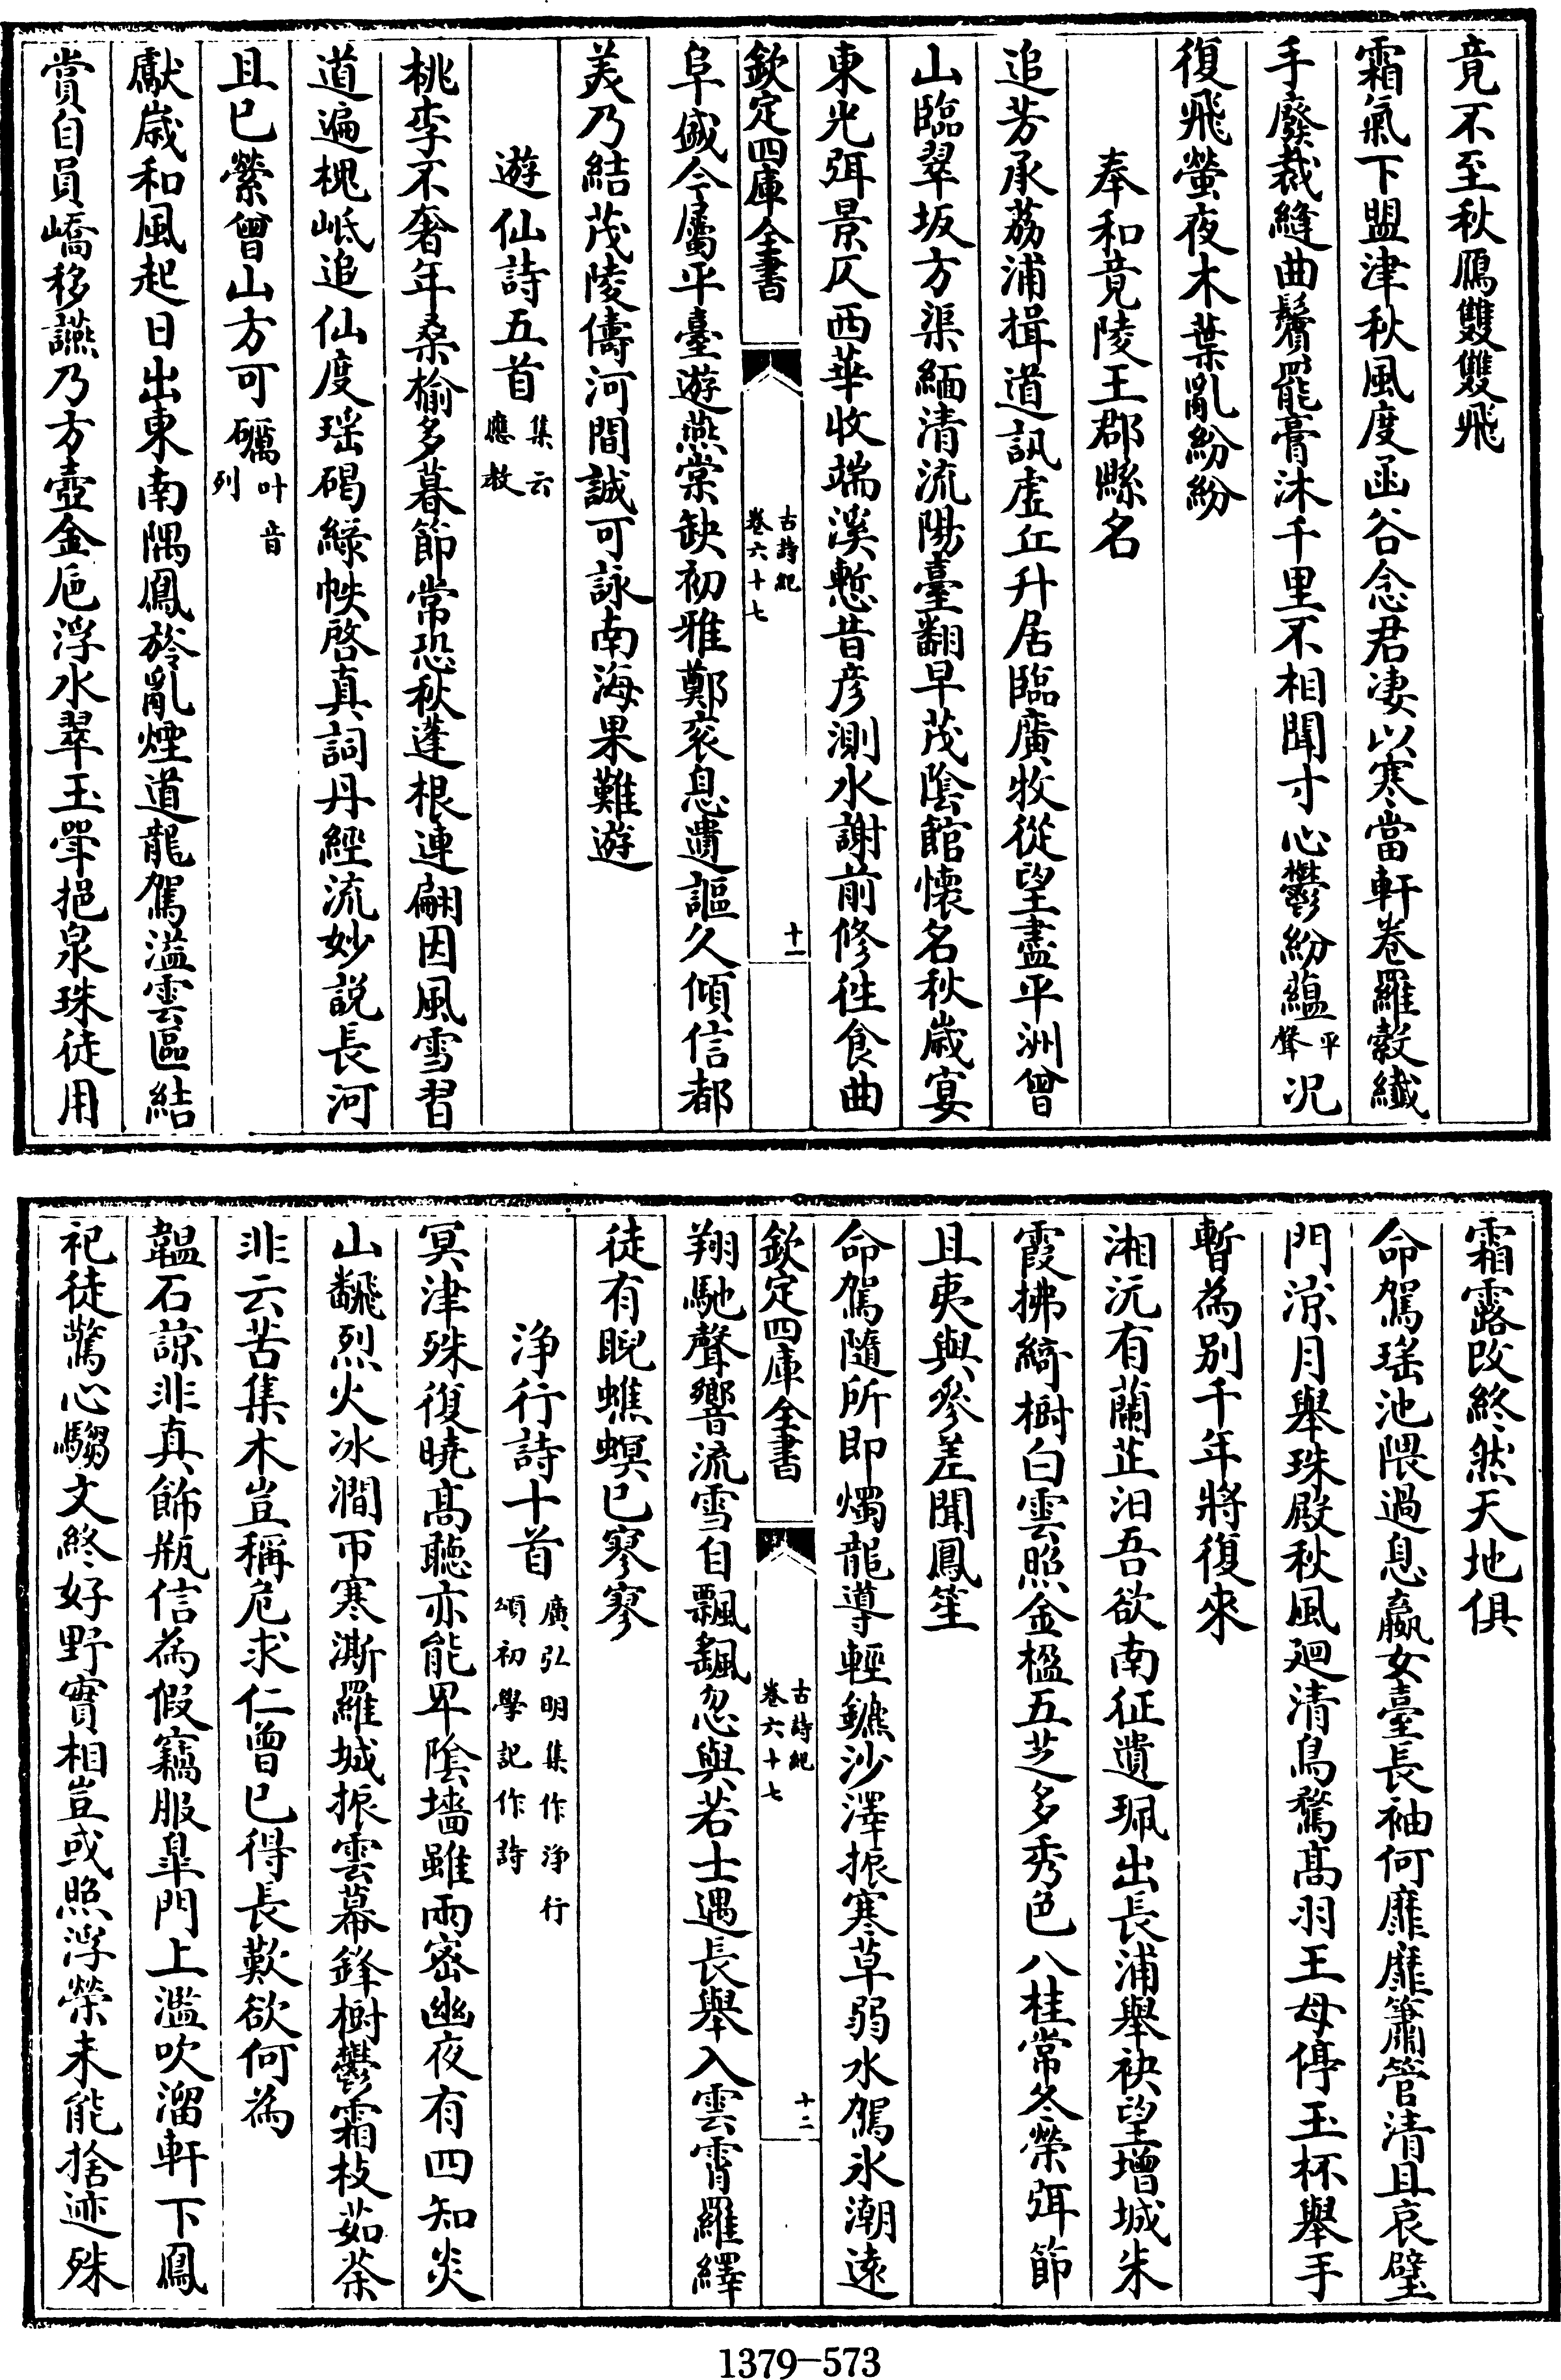 竟不至秋鴈雙雙飛
霜氣下盟津秋風度函谷念君凄以寒當軒卷羅縠纖
手廢裁縫曲鬢罷膏沐千里不相聞寸心鬱紛蘊平聲况
復飛螢夜木葉亂紛紛
奉和竟陵王郡縣名
追芳承荔浦揖道訊虚丘升居臨廣牧從望盡平洲曾
山臨翠坂方渠緬清流陽臺翻早茂陰館懷名秋歳宴
東光弭景仄西華收端溪慙昔彦測水謝前修徃食曲
欽定四庫全書
古詩紀
卷六十七
十一
阜盛今屬平臺遊燕棠缺初雅鄭衮息遺謳久傾信都
美乃結茂陵儔河間誠可詠南海果難遊
遊仙詩五首集云應教
桃李不奢年桑榆多暮節常恐秋蓬根連翩因風雪習
道遍槐岻追仙度瑶碣緑帙啓真詞丹經流妙説長河
且已縈曾山方可礪叶音列
獻嵗和風起日出東南隅鳳旍亂煙道龍駕溢雲區結
賞自員嶠移讌乃方壺金巵浮水翠玉斝挹泉珠徒用
霜露改終然天地俱
命駕瑶池隈過息嬴女臺長袖何靡靡簫管清且哀璧
門凉月舉珠殿秋風廻清鳥騖髙羽王母停玉杯舉手
暫為别千年將復來
湘沅有蘭芷汨吾欲南征遺珮出長浦舉袂望增城朱
霞拂綺樹白雲照金楹五芝多秀色八桂常冬榮弭節
且夷與參差聞鳳笙
命駕隨所即燭龍導輕鑣沙澤振寒草弱水駕氷潮逺
欽定四庫全書
古詩紀
卷六十七
十二
翔馳聲響流雪自飄颻忽與若士遇長舉入雲霄羅繹
徒有睨蟭螟已寥寥
浄行詩十首廣弘明集作浄行頌初學記作詩
冥津殊復曉髙聽亦能卑隂墻雖雨密幽夜有四知炎
山飜烈火氷澗帀寒澌羅城振雲幕鋒樹鬱霜枝茹荼
非云苦集木豈稱危求仁曾已得長歎欲何為
韞石諒非真飾瓶信為假竊服臯門上濫吹溜軒下鳳
祀徒驚心騶文終好野實相豈或照浮榮未能捨迹殊
1379-573